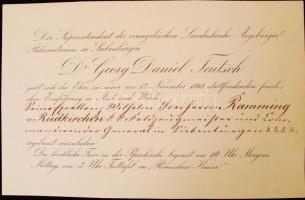 Der Superintendent der evangelischen Landeskirche Augsburger
Bekenntnisses in Siebenbürgen
Dr Georg Daniel Teutsch
gibt sich die Ehre, zu seiner am 12. November 1868 stattfindenden feierlichen
Einführung in Amt und Würde
Seine Excellenz, Wilhelm Freiherrn Ramming
v. Riedkirchen k. k. Feldzeugmeister und Com-
mandirender General in Siebenbürgen
ergebenst einzuladen.
Die kirchliche Feier in der Pfarrkirche beginnt um 10 Uhr Morgens
Mittags um 3 Uhr Festtafel im „Römischen Kaiser.“